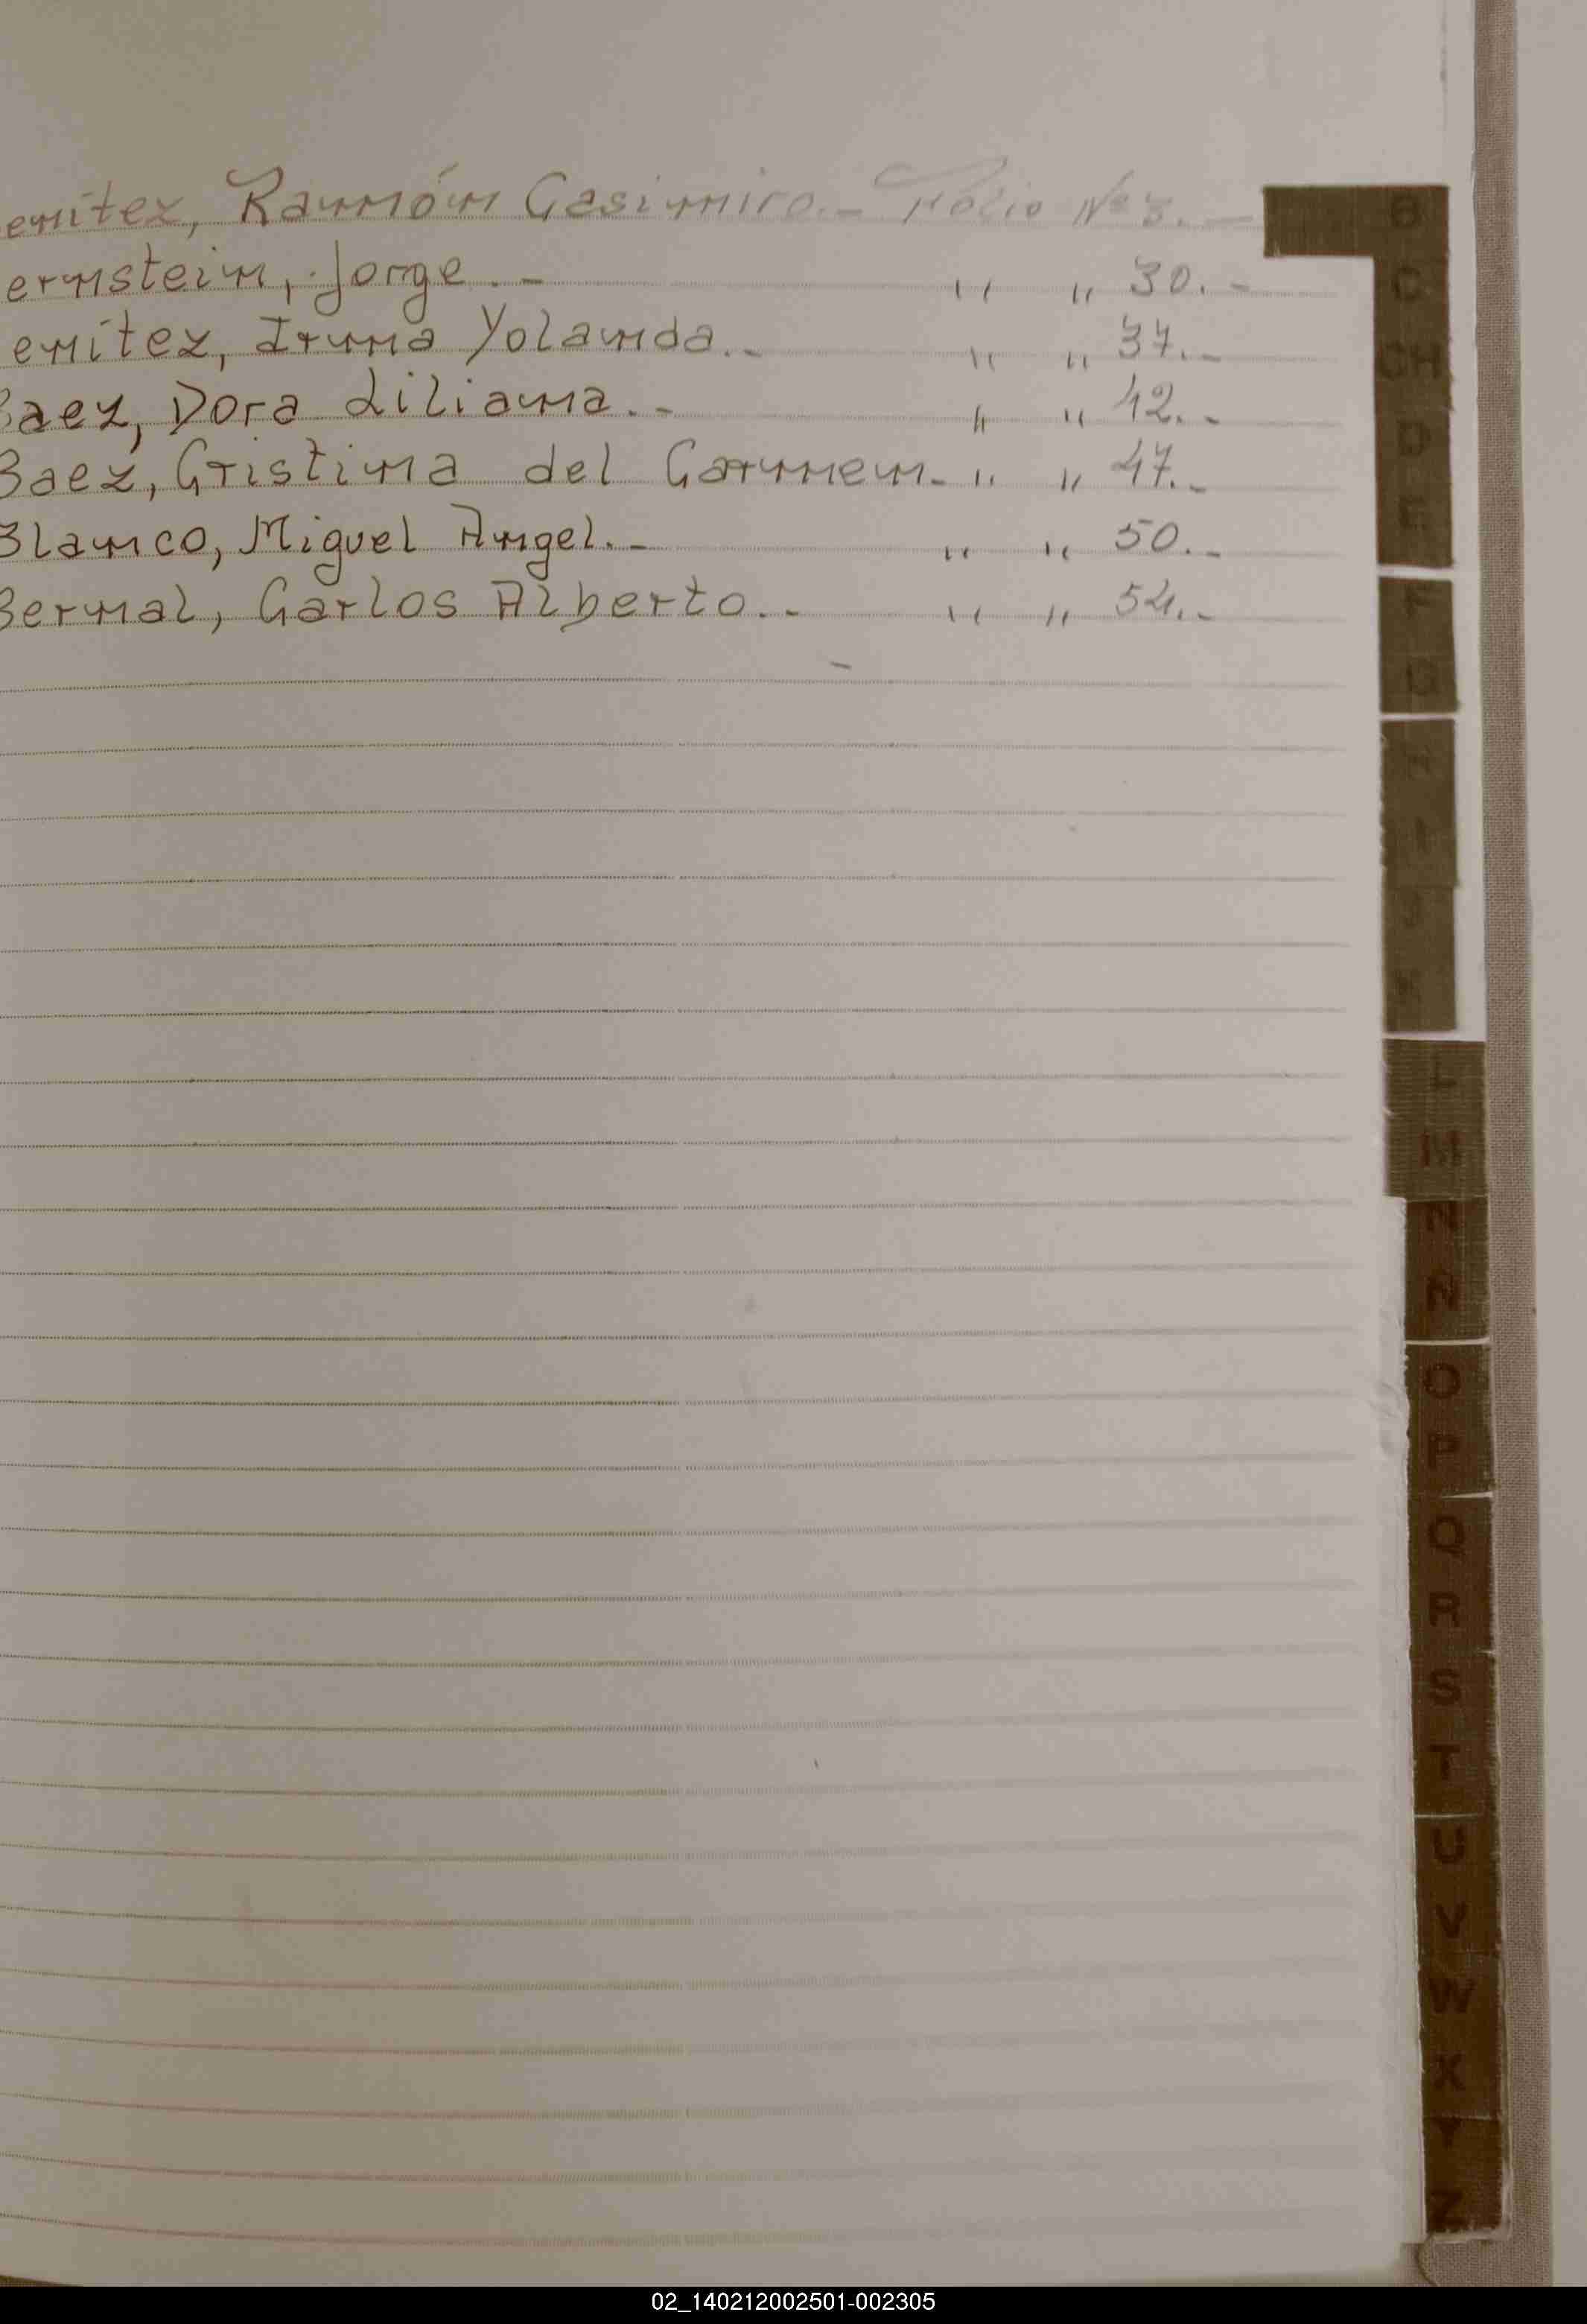 enitez, Ramón Casimiro.- Folio Nº 3.-
ernstein, Jorge.- " " 30.-
enitez, Irma Yolanda.- " " 37.-
Baez, Dora Liliana.- " " 42.-
Baez, Cristina del Carmen.- " " 47.-
Blanco, Miguel Angel.- " " 50.-
Bernal, Carlos Alberto.- " " 54.-
B
C
CH
D
E
F
G
H
I
J
K
L
M
N
Ñ
O
P
Q
R
S
T
U
V
W
X
Y
Z
02_140212002501-002305